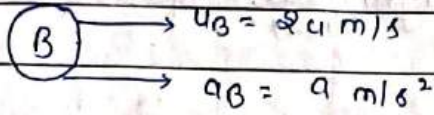 B
u_B = 2u m/s
a_B = a m/s²